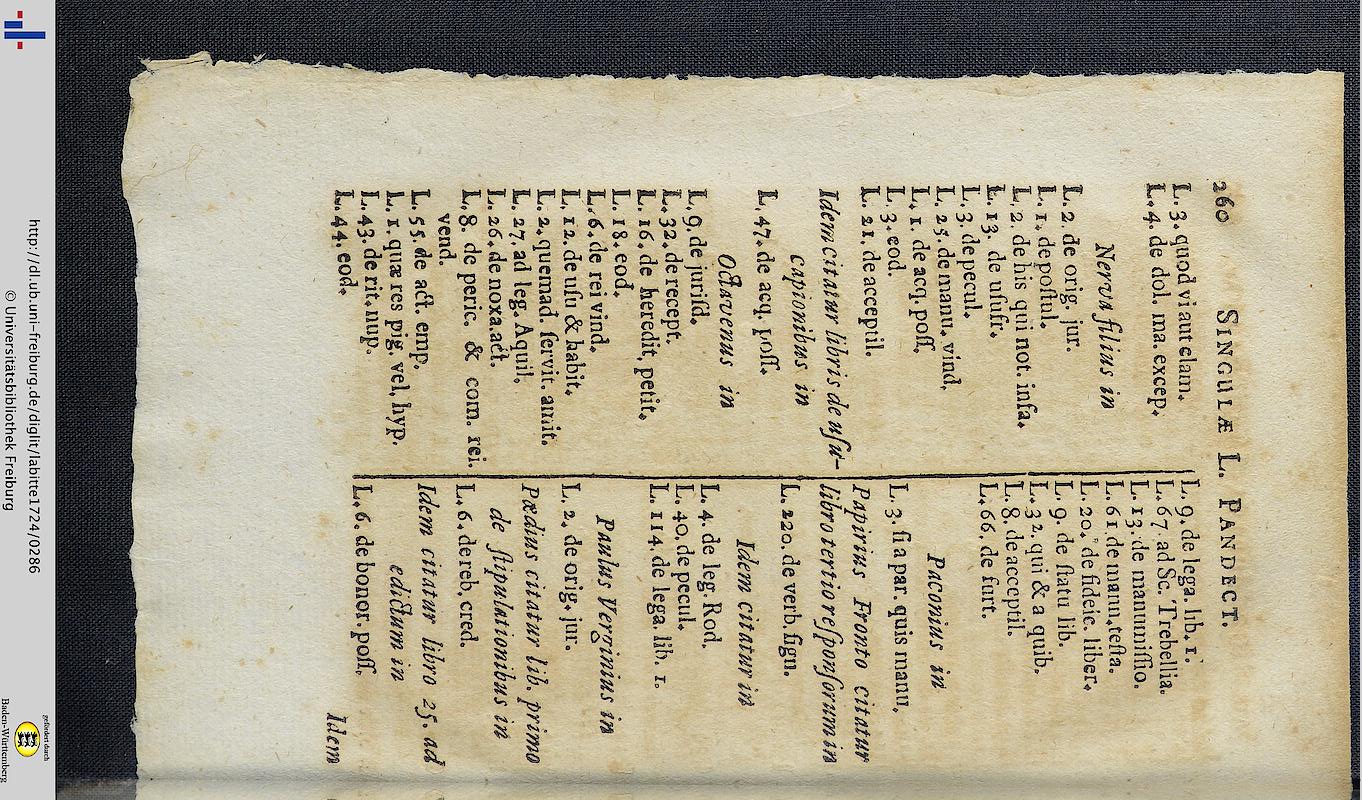 260 SINGULÆ L. PANDECT.
L. 3. quod vi aut clam.
L. 4. de dol. ma. excep.
Nerva filius in
L. 2. de orig. jur.
L. 1. de postul.
L. 2. de his qui not. infa.
L. 13. de usufr.
L. 3. de pecul.
L. 25. de manu. vind.
L. 1. de acq. poss.
L. 3. eod.
L. 21. de acceptil.
Idem citatur libris de usu-
capionibus in
L. 47. de acq. poss.
Octavenus in
L. 9. de jurisd.
L. 32. de recept.
L. 16. de heredit. petit.
L. 18. eod.
L. 6. de rei vind.
L. 12. de usu & habit.
L. 2. quemad. servit. amit.
L. 27. ad leg. Aquil.
L. 26. de noxa. act.
L. 8. de peric. & com. rei.
vend.
L. 55. de act. emp.
L. 1. quæ res pig. vel. hyp.
L. 43. de rit. nup.
L. 44. eod.
L. 9. de lega. lib. 1.
L. 67. ad Sc. Trebellia.
L. 13. de manumissio.
L. 61 de manu. testa.
L. 20. de fideic. liber.
L. 9. de statu lib.
L. 32. qui & a quib.
L. 8. de acceptil.
L. 66. de furt.
Paconius in
L. 3. si a par. quis manu.
Papirius Fronto citatur
libro tertio responsorum in
L. 220. de verb. sign.
Idem citatur in
L. 4. de leg. Rod.
L. 40. de pecul.
L. 114. de lega. lib. 1.
Paulus Verginius in
L. 2. de orig. jur.
Pædius citatur lib. primo
de stipulationibus in
L. 6. de reb. cred.
Idem citatur libro 25. ad
edictum in
L. 6. de bonor. poss.
Idem
http://dl.ub.uni-freiburg.de/diglit/labitte1724/0286
© Universitätsbibliothek Freiburg
gefördert durch
Baden-Württemberg